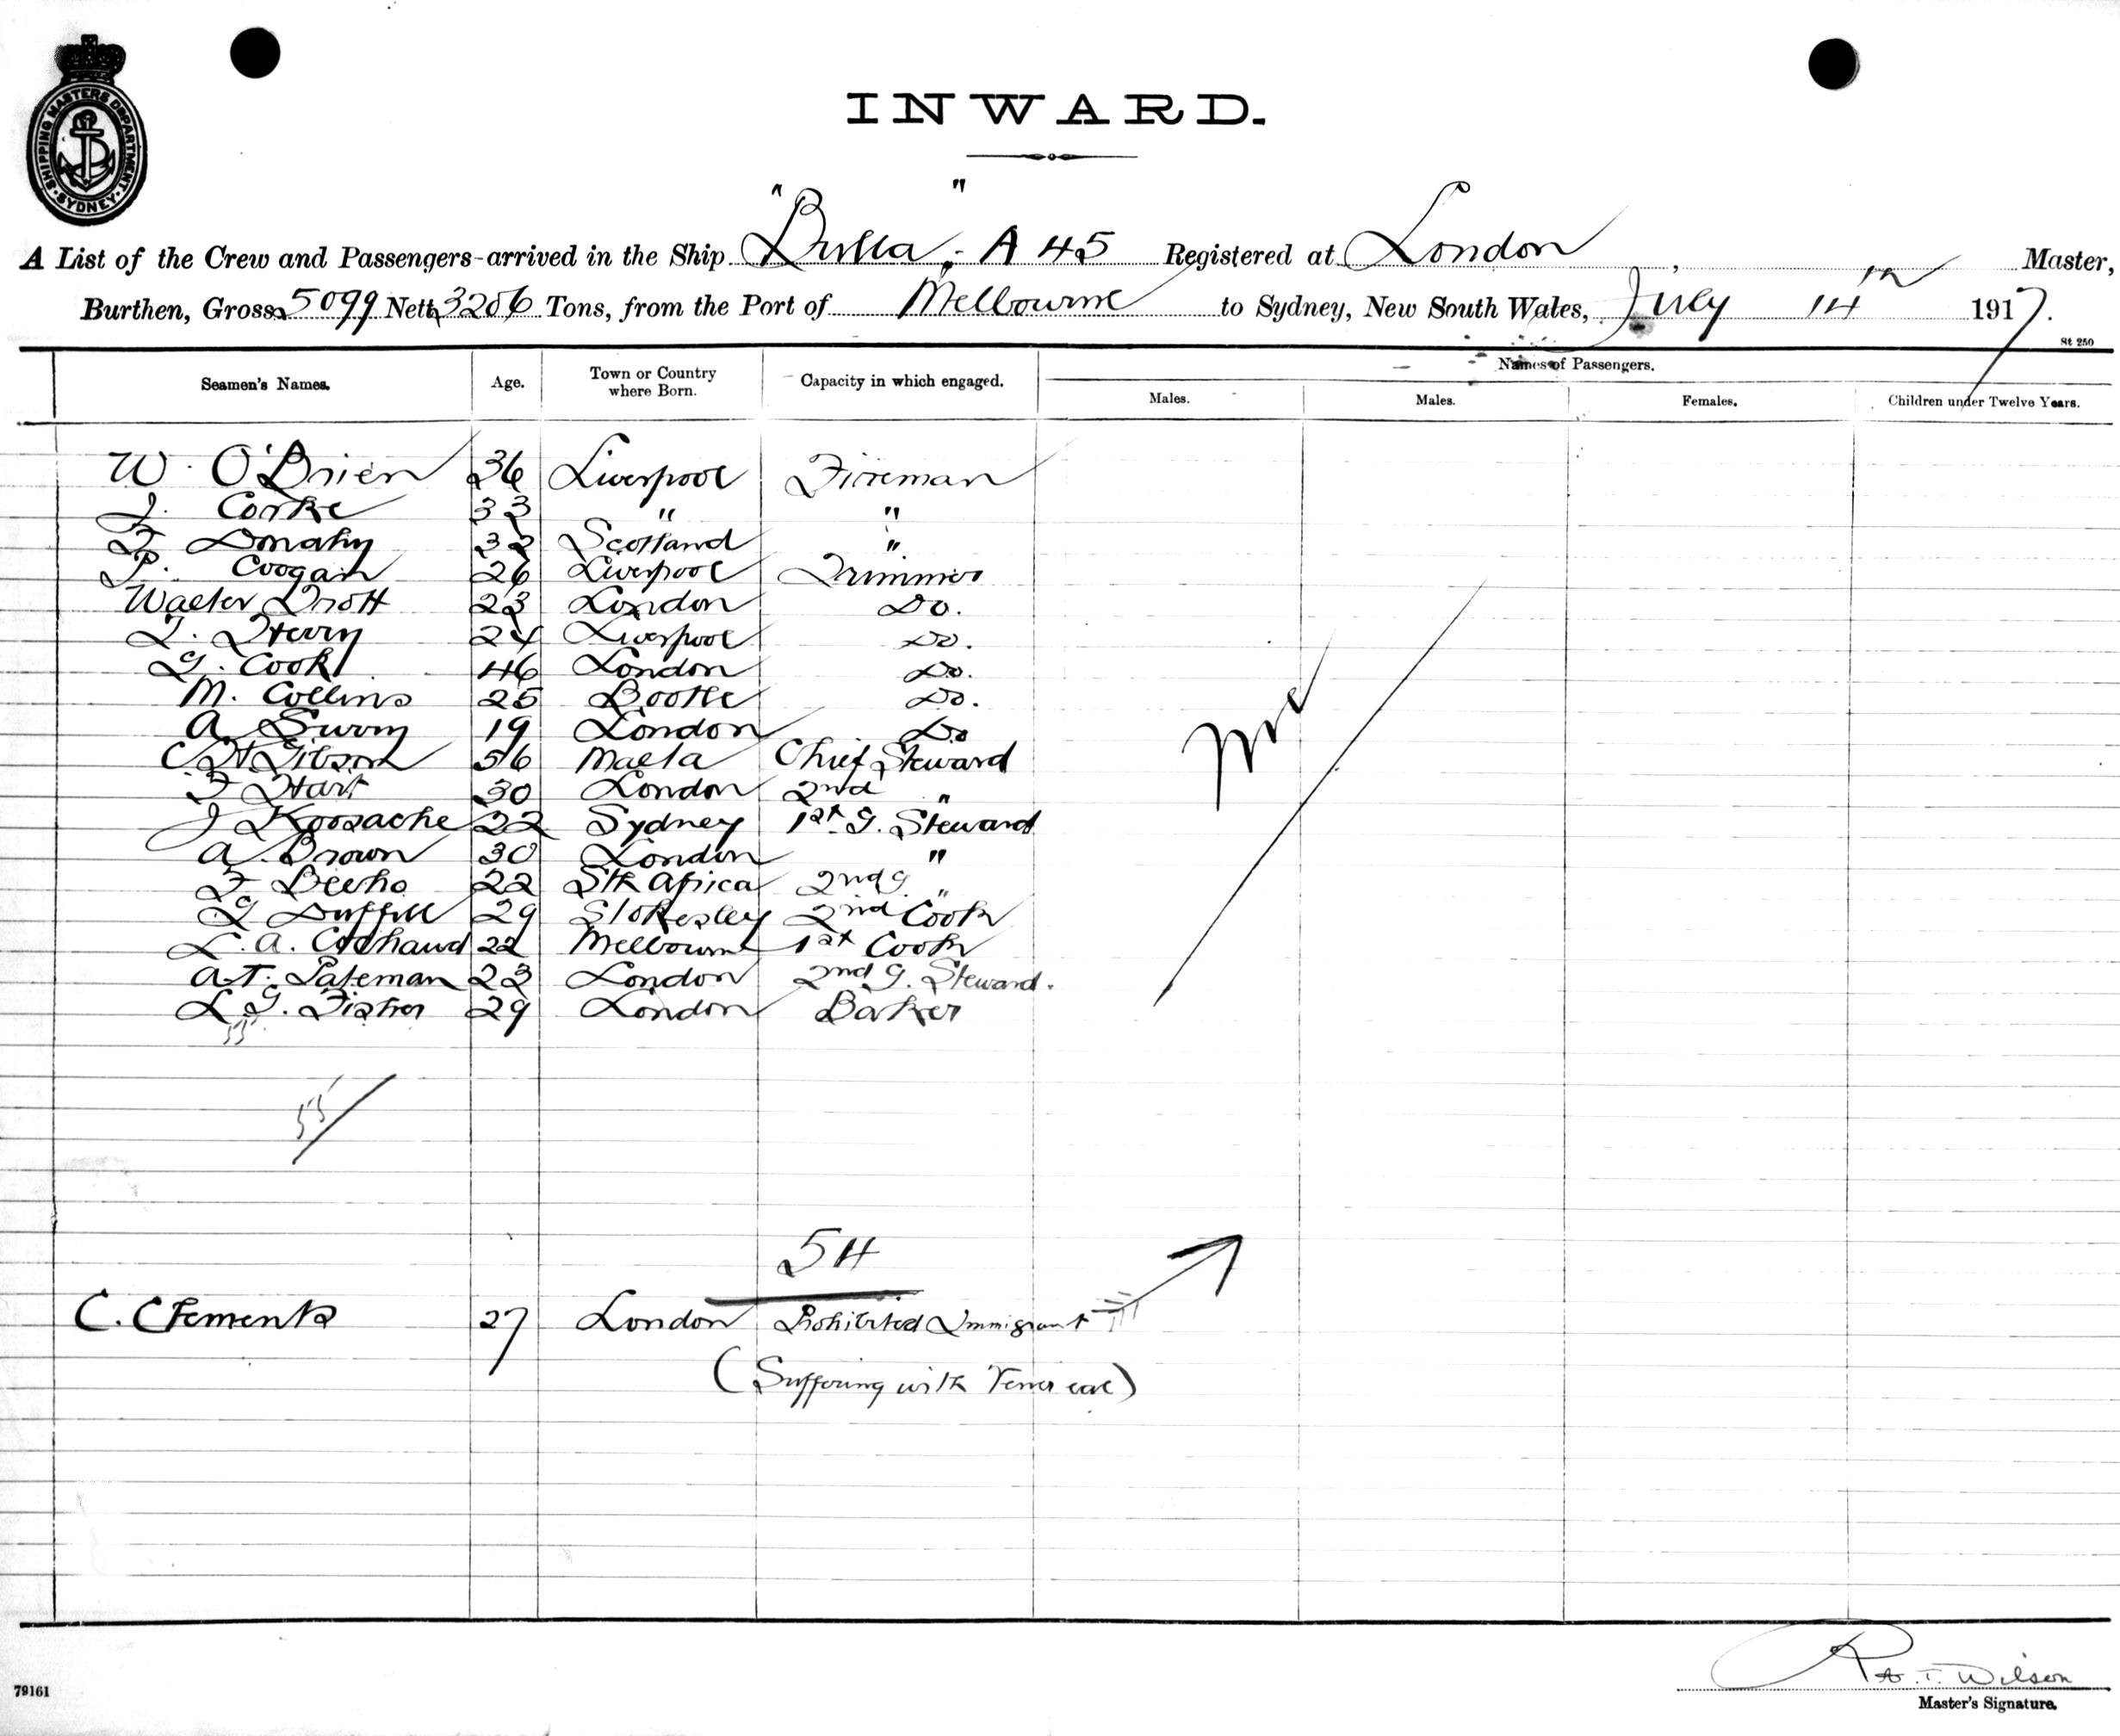 SHIPPING MASTERS DEPARTMENT. SYDNEY
INWARD.
A List of the Crew and Passengers arrived in the Ship "Bulla" - A 45 Registered at London, Master,
Burthen, Gross 5099 Nett 3206 Tons, from the Port of Melbourne to Sydney, New South Wales, July 14th 1917.
St 250
Seamen's Names. Age. Town or Country where Born. Capacity in which engaged. Names of Passengers.
Males. Males. Females. Children under Twelve Years.
W. O'Brien 36 Liverpool Fireman
J. Corke 33 " "
32 Scotland "
P. Coogan 26 Liverpool Trimmer
Walter 23 London Do.
24 Liverpool Do.
G. Cook 46 London Do.
M. Collins 25 Bootle Do.
A. 19 London Do
C H Gibson 56 Malta Chief Steward
F Hart 30 London 2nd "
J 22 Sydney 1st G. Steward
A. Brown 30 London "
F 22 Sth Africa 2nd G. "
G Duffill 29 Stokesley 2nd Cook
L. A. 22 Melbourne 1st Cook
A. T. Pateman 23 London 2nd G. Steward.
L G. Fisher 29 London Baker
55
55
54
C. Clements 27 London Prohibited Immigrant
(Suffering with Venereal)
R. T. Wilson
79161
Master's Signature.